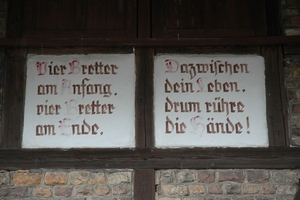 Vier Bretter
am Anfang,
vier Bretter
am Ende.
Dazwischen
dein Leben,
drum rühre
die Hände!